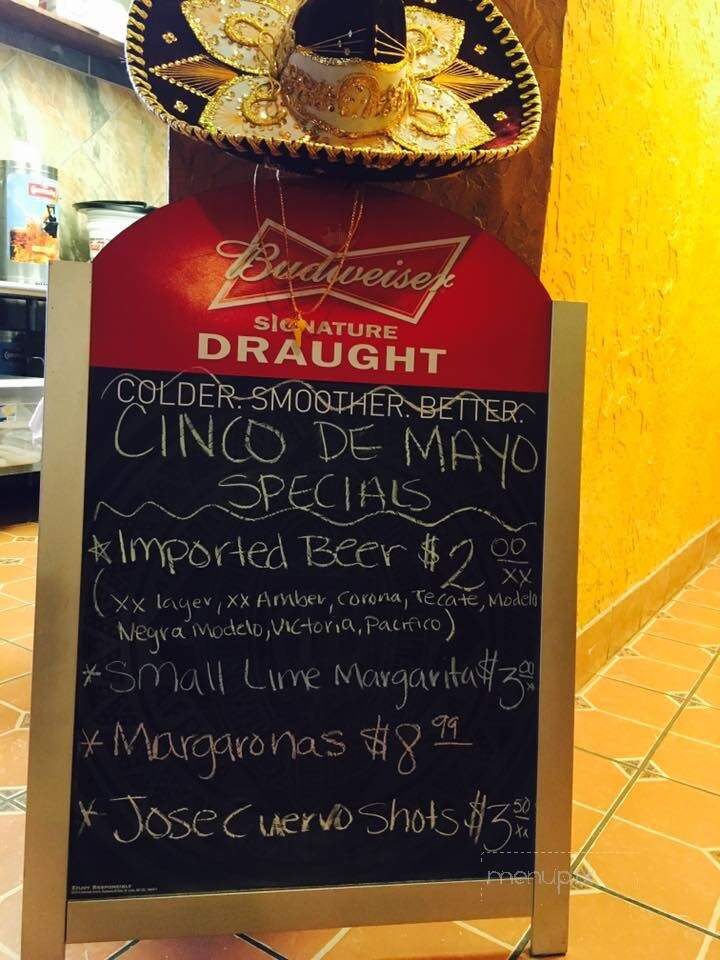 Budweiser
SIGNATURE
DRAUGHT
COLDER. SMOOTHER. BETTER.
CINCO DE MAYO
SPECIALS
* Imported Beer $2 00/xx
(xx lager, xx Amber, Corona, Tecate, Modelo
Negra Modelo, Victoria, Pacifico)
* Small Lime Margarita $3 00/x
* Margaronas $8 99
* Jose Cuervo Shots $3 50/xx
ENJOY RESPONSIBLY
menupix